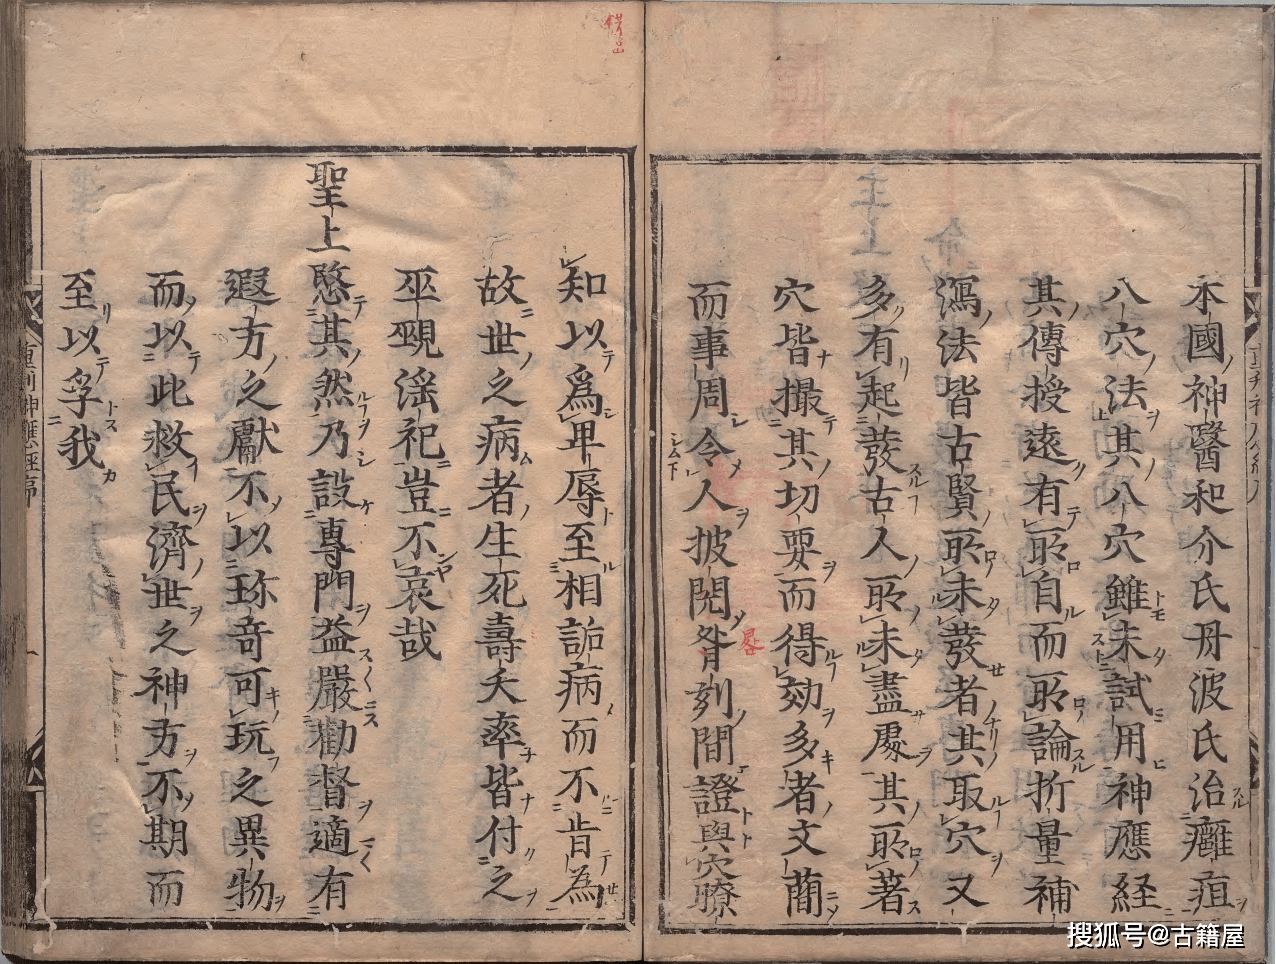 本國神醫和介氏丹波氏治癰疽
八穴法其八穴雖未試用神應経
其傳授遠有所自而所論折量補
瀉法皆古賢所未發者其取穴又
多有起發古人所未盡處其所著
穴皆撮其切要而得効多者文簡
而事周令人披閱咎刻間證與穴瞭
知以為卑辱至相詬病而不肯為
故世之病者生死壽夭率皆付之
巫覡淫祀豈不哀哉
聖上愍其然乃設專門益嚴勸督適有
遐方之獻不以珎奇可玩之異物
而以此救民濟世之神方不期而
至以孚我
重刊神應經序
搜狐号@古籍屋